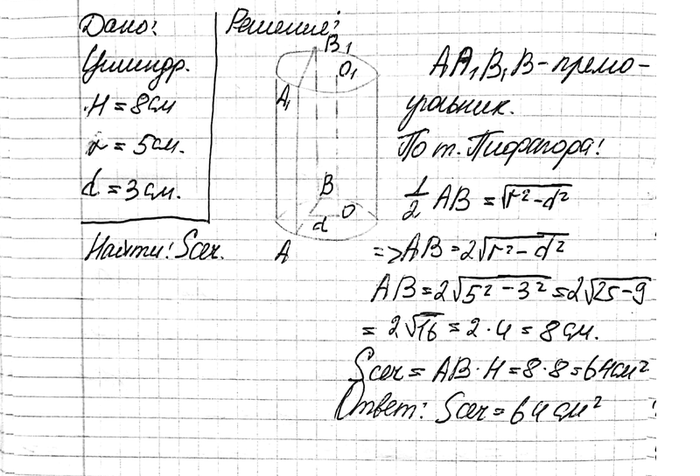 Дано:
Цилиндр.
H = 8 см
r = 5 см.
d = 3 см.
Найти: Sсеч.
Решение:
B₁
O₁
A₁
B
O
d
A
AA₁B₁B - прямо-
угольник.
По т. Пифагора:
1/2 AB = √r² - d²
=> AB = 2√r² - d²
AB = 2√5² - 3² = 2√25 - 9
= 2√16 = 2 · 4 = 8 см.
Sсеч = AB · H = 8 · 8 = 64 см²
Ответ: Sсеч = 64 см²